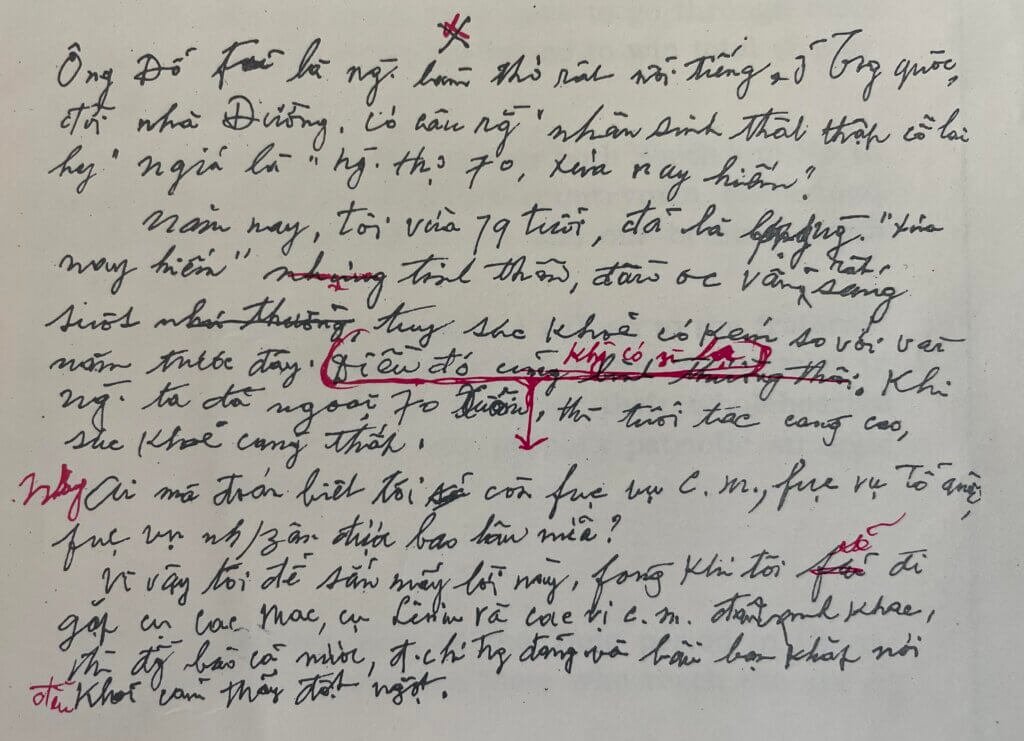 Ông Đỗ Fủ là ng. làm thơ rất nổi tiếng, ở Tq quốc,
đời nhà Đường. Có câu rg "nhân sinh thất thập cổ lai
hy" nghĩa là "ng. thọ 70, xưa nay hiếm."
Năm nay, tôi vừa 79 tuổi, đã là ng. "xưa
nay hiếm" nhưng tinh thần, đầu óc vẫn rất sáng
suốt như thường, tuy sức khoẻ có kém so với vài
năm trước đây. Điều đó cũng Khg có gì lạ bình thường thôi. Khi
ng. ta đã ngoài 70 xuân, thì tuổi tác càng cao,
sức khoẻ càng thấp.
Nhưng Ai mà đoán biết tôi sẽ còn fục vụ c.m., fục vụ Tổ quốc,
fục vụ nh/zân được bao lâu nữa?
Vì vậy tôi để sẵn mấy lời này, fòng khi tôi sẽ đi
gặp cụ Các Mác, cụ Lênin và các vị c.m. đàn anh khác,
thì đg bào cả nước, đ.chí tg đảng và bầu bạn khắp nơi
đều Khỏi cảm thấy đột ngột.